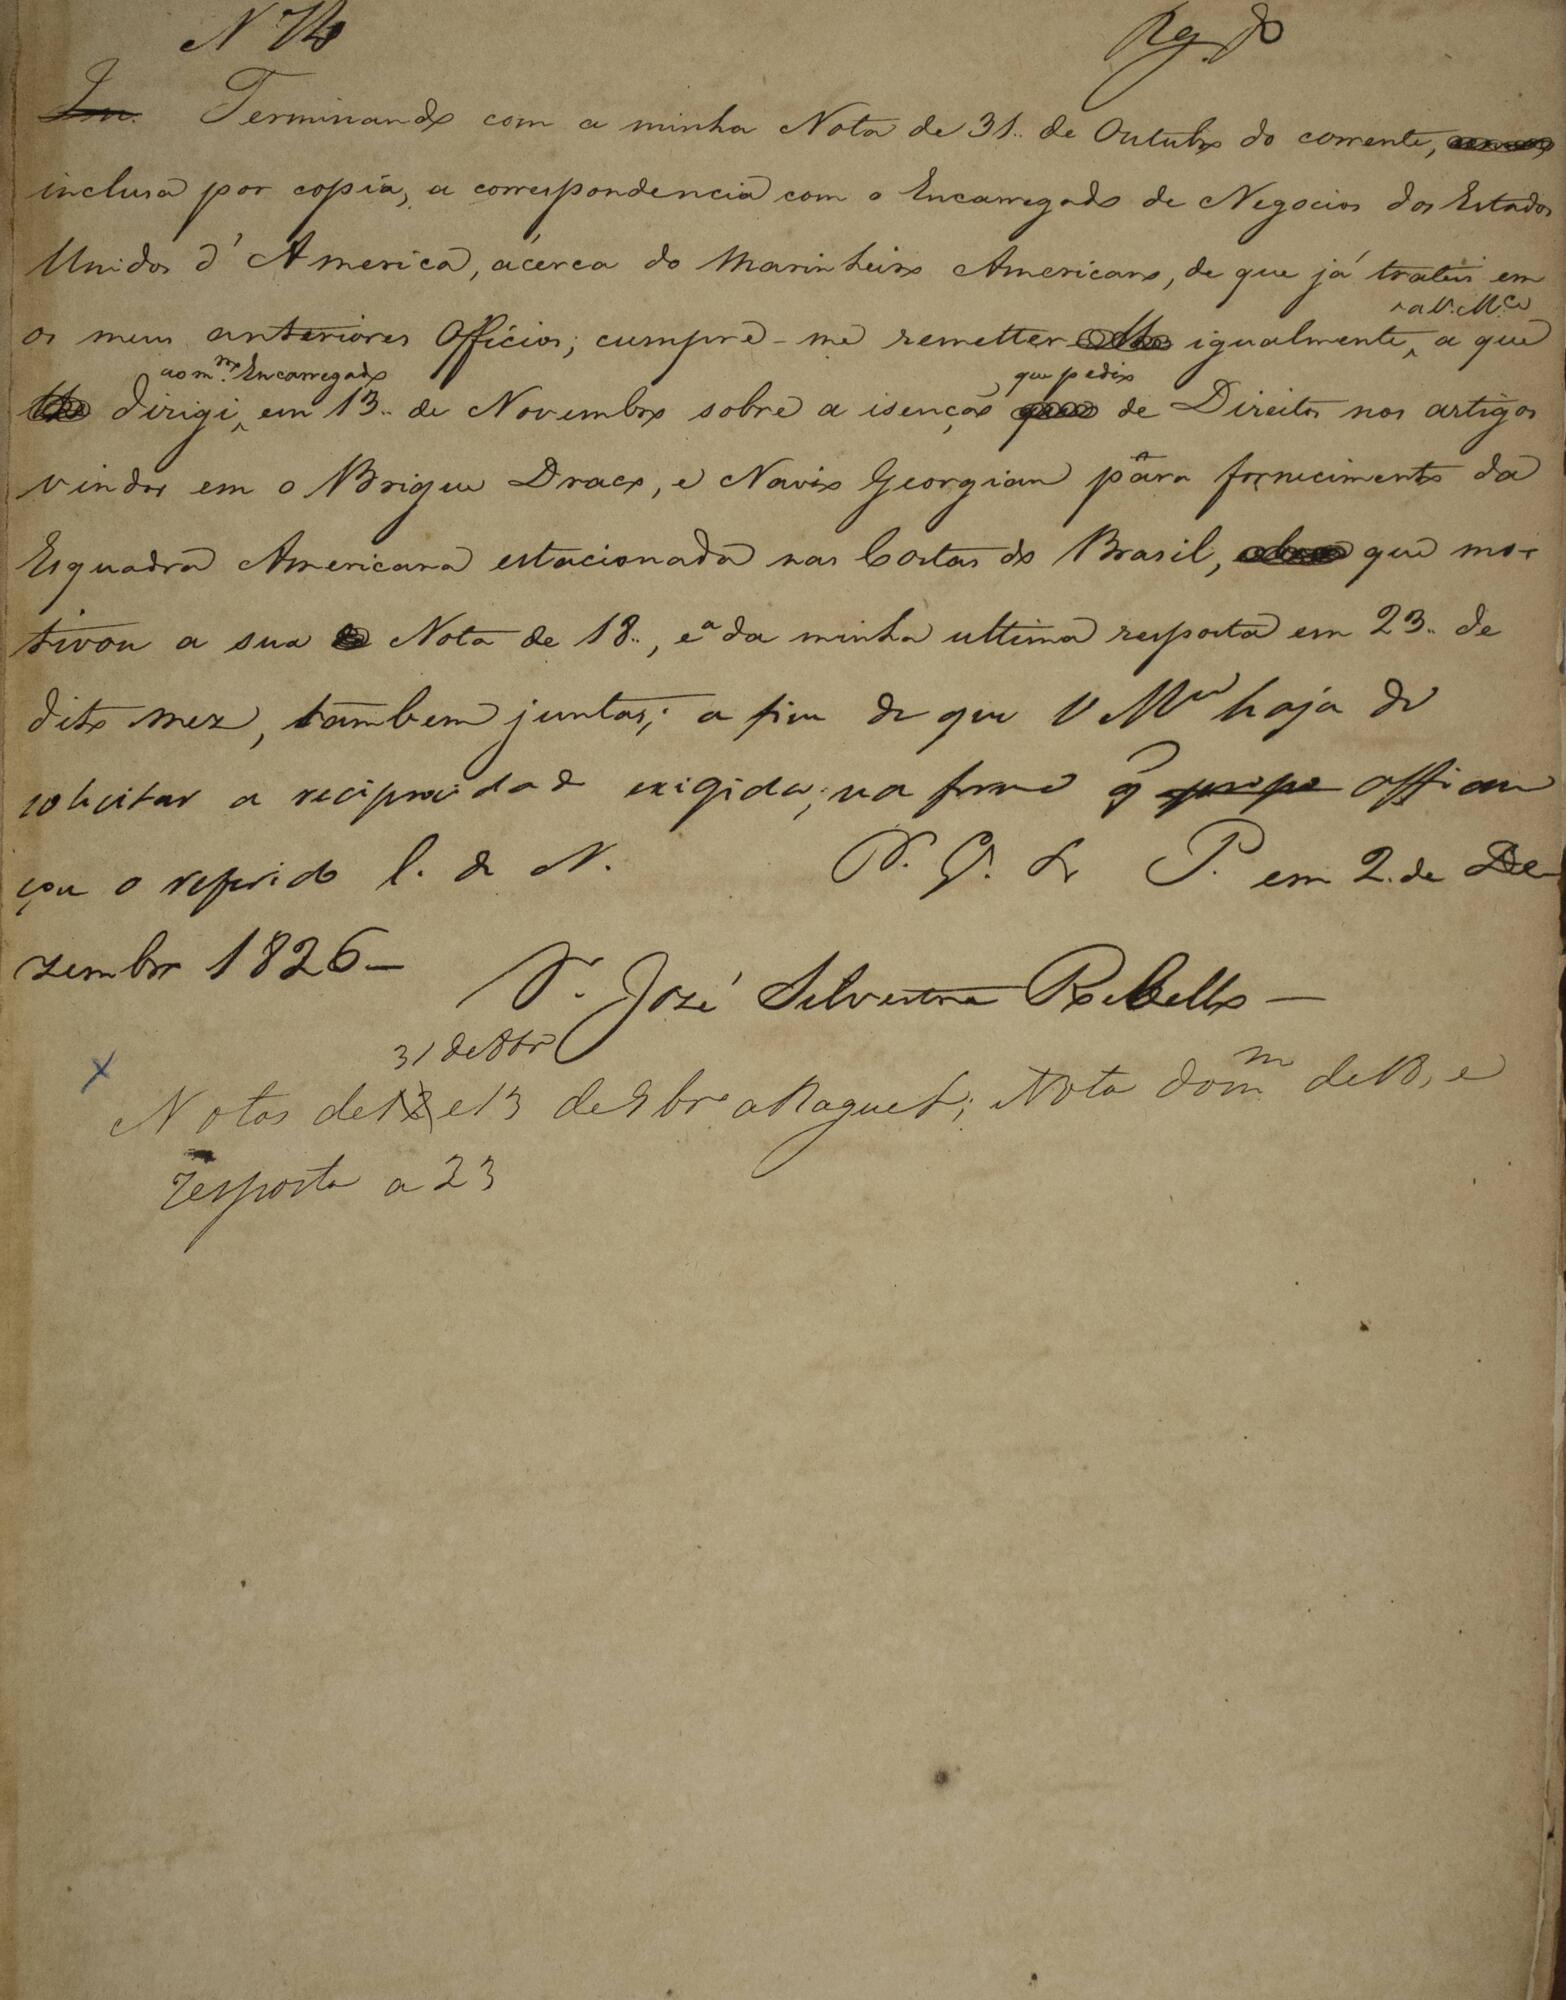 Reg.do
Terminando com a minha Nota de 31.. de Outubro do corrente,
inclusa por copia, a correspondencia com o Encarregado de Negocios dos Estados
Unidos d'America, ácerca do Marinheiro Americano, de que já tratei em
a V. M.ce
os meus anteriores Officios; cumpre-me remetter igualmente, a que
ao m.mo Encarregado que pedio
dirigi, em 13.. de Novembro sobre a isenção de Direitos nos artigos
vindos em o Brigue Draco, e Navio Georgian pâra fornecimento da
Esquadra Americana estacionada nas Costas do Brasil, que mo-
tivou a sua Nota de 18.., e a da minha ultima resposta em 23.. de
dito mez, tambem juntas; a fim de que V M.ce haja de
solicitar a reciprocidade exigida, na forma q affian
çou o referido C. de N. D. G. de P. em 2. de De
zembro 1826—
S.r José Silvestre Rebello—
31 de 8br.o
Notas de e 13 de 9br.o a Raguet; Nota do m.mo de 18, e
resposta a 23